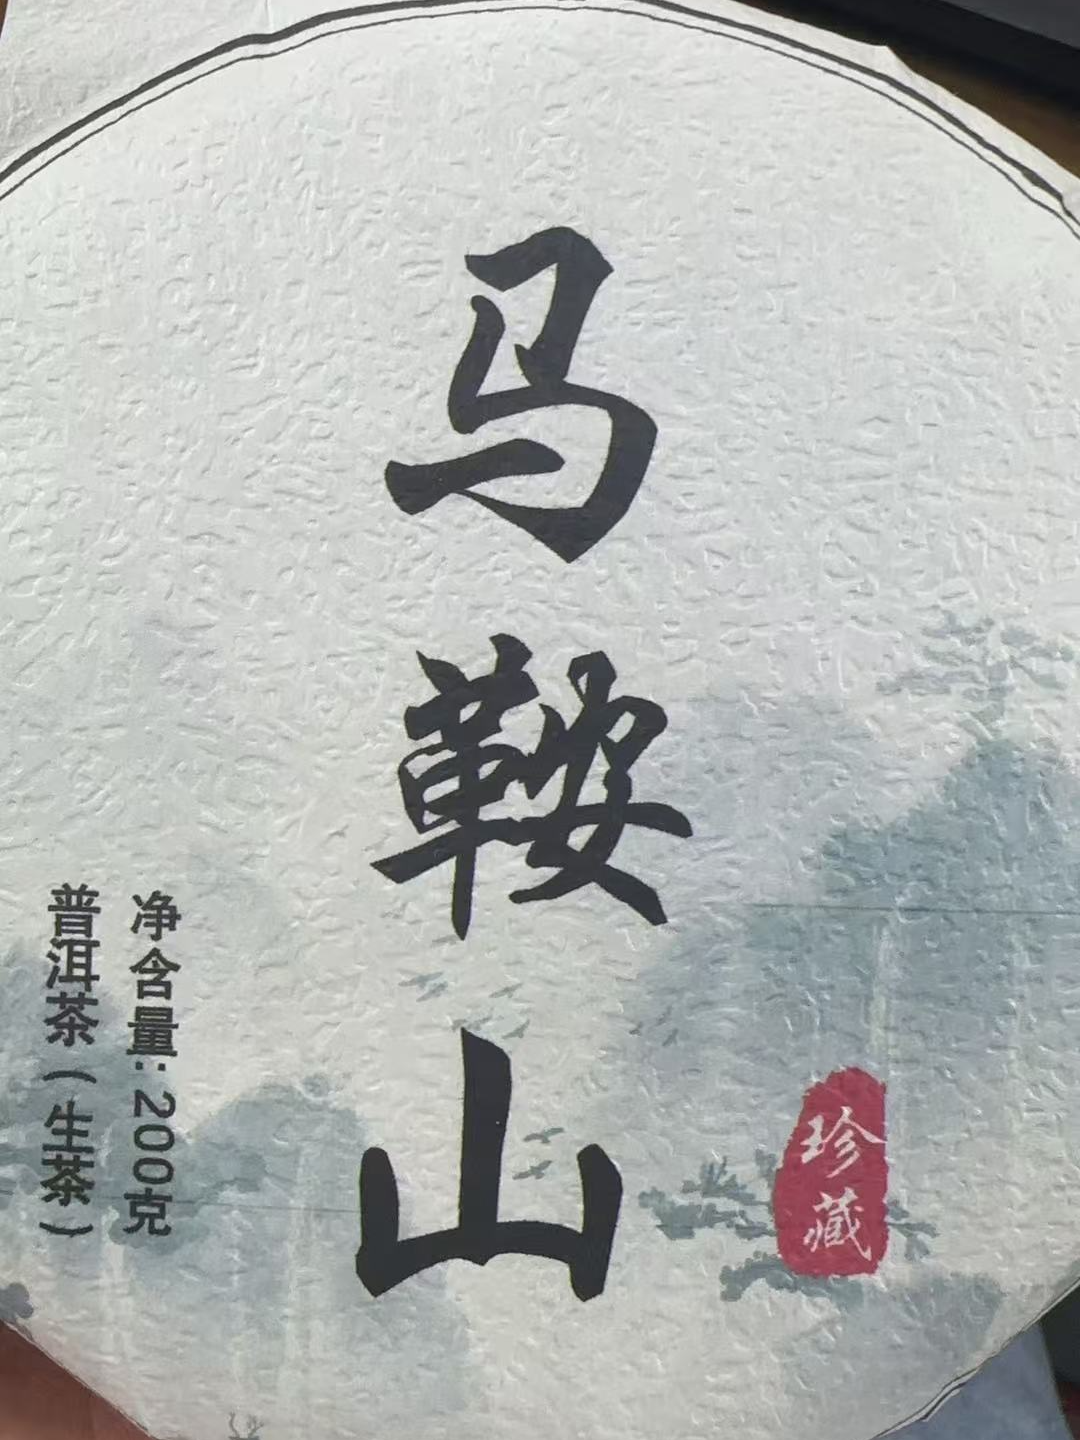 马鞍山
珍藏
净含量:200克
普洱茶(生茶)